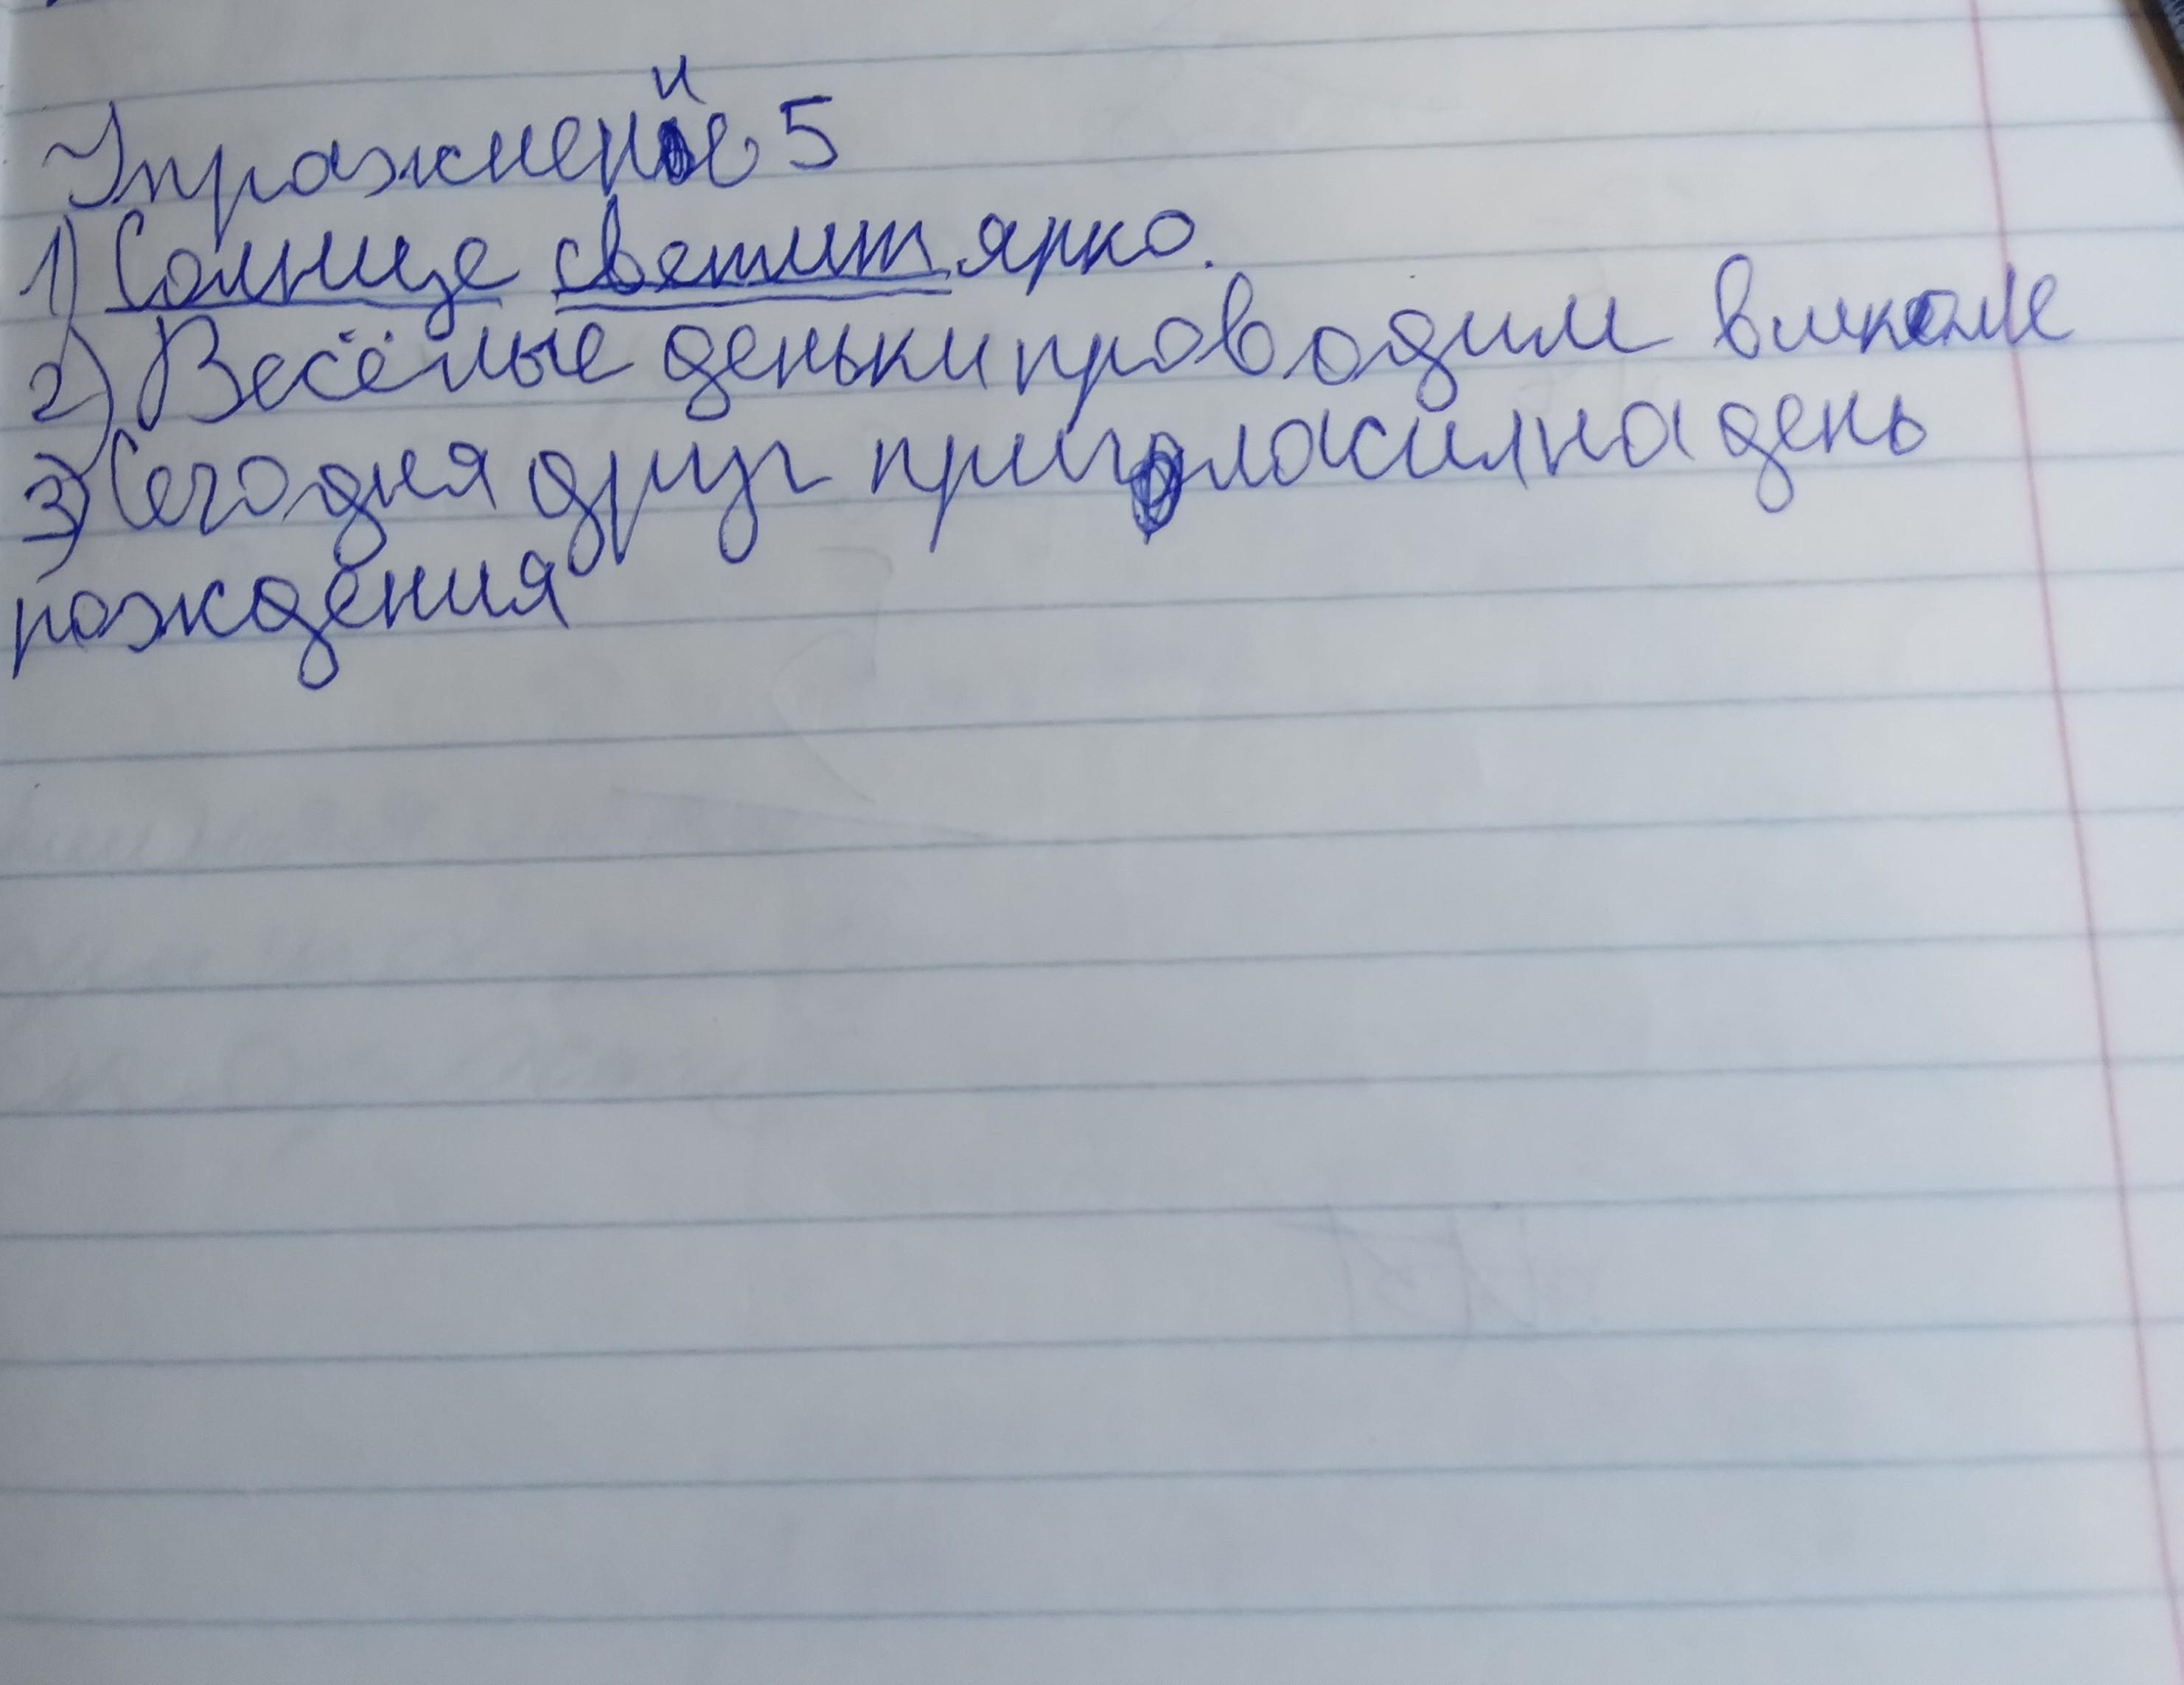 Упражнение 5
1) Солнце светит ярко.
2) Весёлые деньки проводим в школе
3) Сегодня друг пригласил на день
рождения